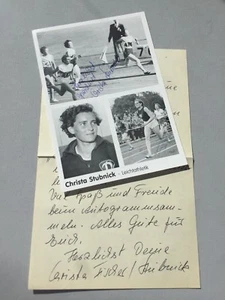 7
Christa Stubnick - Leichtathletik
Viel Spaß und Freude
beim Autogrammsam-
meln. Alles Gute für
Dich.
Herzlichst Deine
Christa Fischer/Stubnick